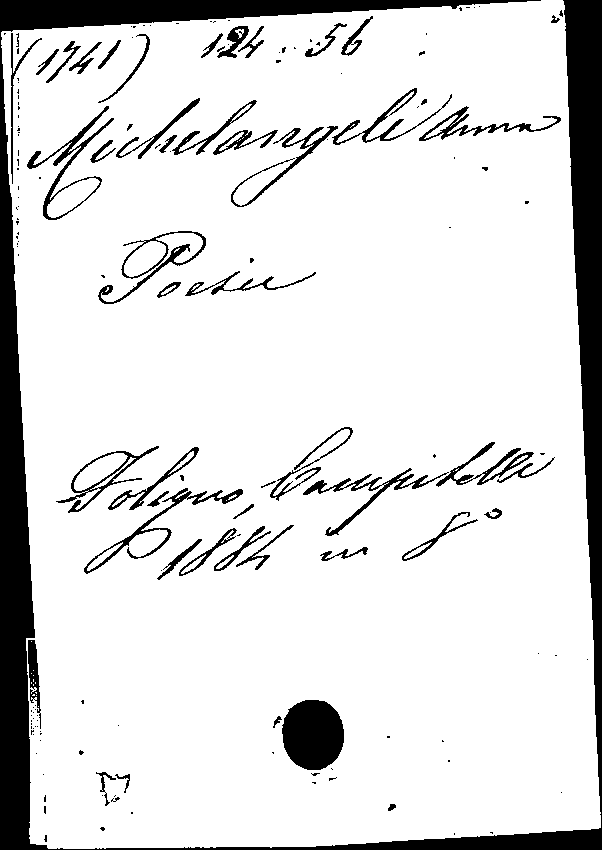 (1741) 124 : 56
Michelangeli Anna
Poesie
Foligno, Campitelli
1884 in 8°